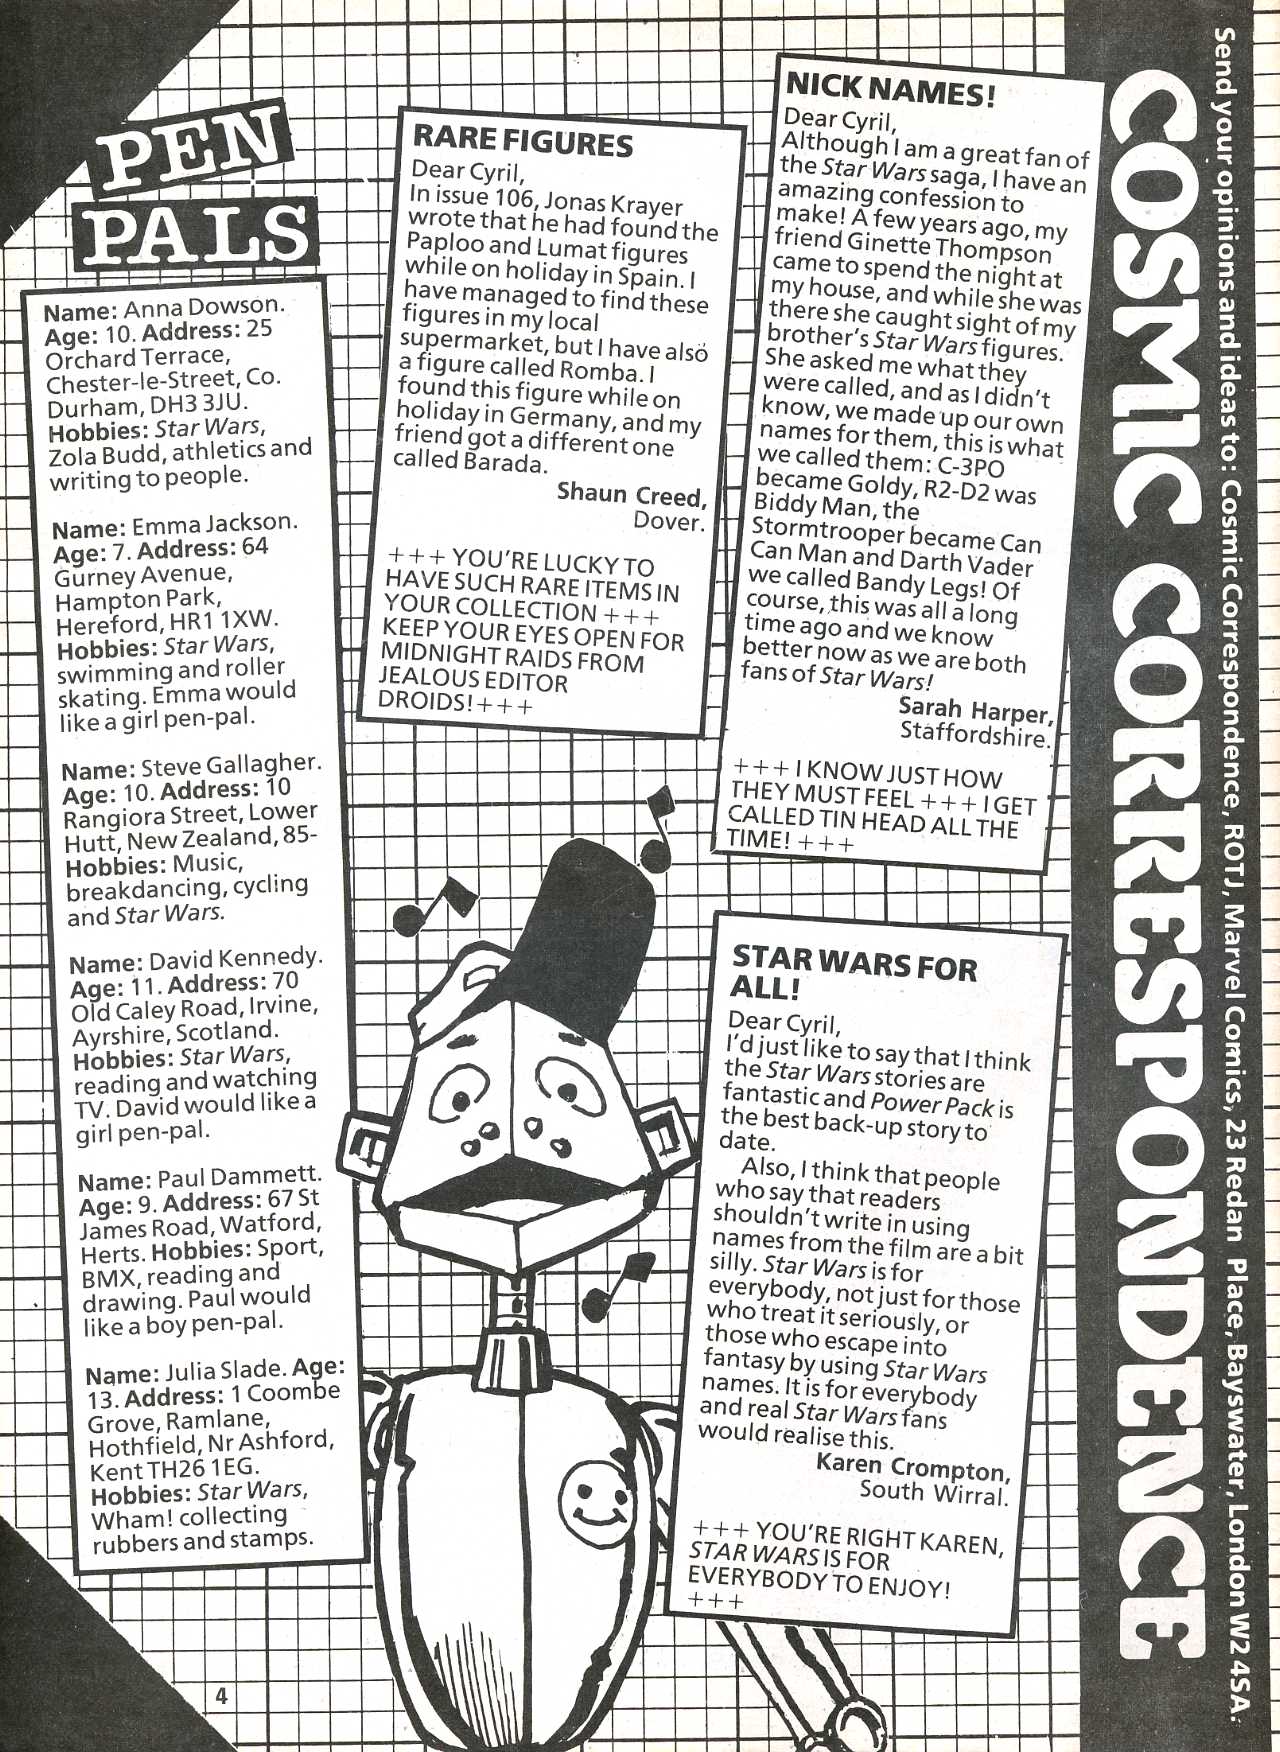 PEN
PALS
Name: Anna Dowson.
Age: 10. Address: 25
Orchard Terrace,
Chester-le-Street, Co.
Durham, DH3 3JU.
Hobbies: Star Wars,
Zola Budd, athletics and
writing to people.
Name: Emma Jackson.
Age: 7. Address: 64
Gurney Avenue,
Hampton Park,
Hereford, HR1 1XW.
Hobbies: Star Wars,
swimming and roller
skating. Emma would
like a girl pen-pal.
Name: Steve Gallagher.
Age: 10. Address: 10
Rangiora Street, Lower
Hutt, New Zealand, 85-
Hobbies: Music,
breakdancing, cycling
and Star Wars.
Name: David Kennedy.
Age: 11. Address: 70
Old Caley Road, Irvine,
Ayrshire, Scotland.
Hobbies: Star Wars,
reading and watching
TV. David would like a
girl pen-pal.
Name: Paul Dammett.
Age: 9. Address: 67 St
James Road, Watford,
Herts. Hobbies: Sport,
BMX, reading and
drawing. Paul would
like a boy pen-pal.
Name: Julia Slade. Age:
13. Address: 1 Coombe
Grove, Ramlane,
Hothfield, Nr Ashford,
Kent TH26 1EG.
Hobbies: Star Wars,
Wham! collecting
rubbers and stamps.
RARE FIGURES
Dear Cyril,
In issue 106, Jonas Krayer
wrote that he had found the
Paploo and Lumat figures
while on holiday in Spain. I
have managed to find these
figures in my local
supermarket, but I have also
a figure called Romba. I
found this figure while on
holiday in Germany, and my
friend got a different one
called Barada.
Shaun Creed,
Dover.
+++ YOU'RE LUCKY TO
HAVE SUCH RARE ITEMS IN
YOUR COLLECTION +++
KEEP YOUR EYES OPEN FOR
MIDNIGHT RAIDS FROM
JEALOUS EDITOR
DROIDS! +++
NICK NAMES!
Dear Cyril,
Although I am a great fan of
the Star Wars saga, I have an
amazing confession to
make! A few years ago, my
friend Ginette Thompson
came to spend the night at
my house, and while she was
there she caught sight of my
brother's Star Wars figures.
She asked me what they
were called, and as I didn't
know, we made up our own
names for them, this is what
we called them: C-3PO
became Goldy, R2-D2 was
Biddy Man, the
Stormtrooper became Can
Can Man and Darth Vader
we called Bandy Legs! Of
course, this was all a long
time ago and we know
better now as we are both
fans of Star Wars!
Sarah Harper,
Staffordshire.
+++ I KNOW JUST HOW
THEY MUST FEEL +++ I GET
CALLED TIN HEAD ALL THE
TIME! +++
STAR WARS FOR
ALL!
Dear Cyril,
I'd just like to say that I think
the Star Wars stories are
fantastic and Power Pack is
the best back-up story to
date.
Also, I think that people
who say that readers
shouldn't write in using
names from the film are a bit
silly. Star Wars is for
everybody, not just for those
who treat it seriously, or
those who escape into
fantasy by using Star Wars
names. It is for everybody
and real Star Wars fans
would realise this.
Karen Crompton,
South Wirral.
+++ YOU'RE RIGHT KAREN,
STAR WARS IS FOR
EVERYBODY TO ENJOY!
+++
COSMIC CORRESPONDENCE
Send your opinions and ideas to: Cosmic Correspondence, ROTJ, Marvel Comics, 23 Redan Place, Bayswater, London W2 4SA.
4